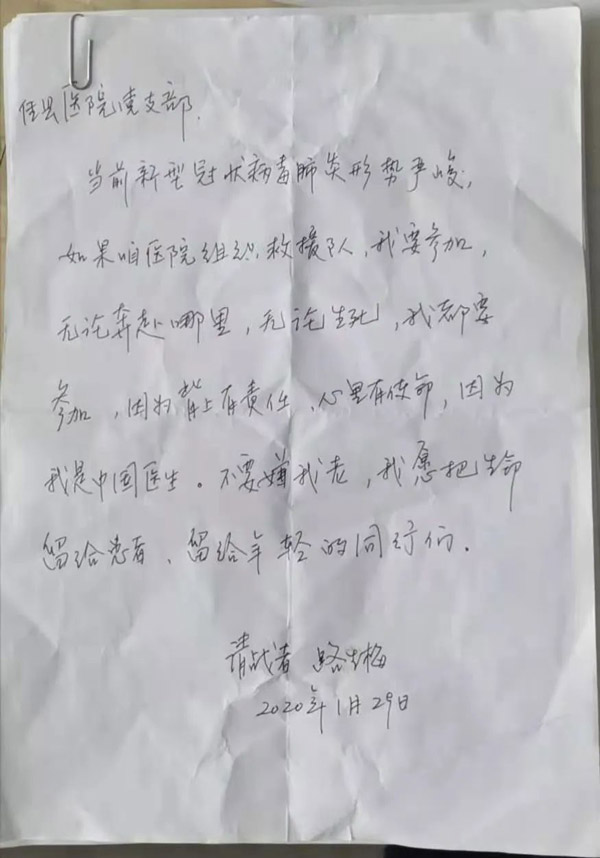 佳县医院党支部,
当前新型冠状病毒肺炎形势严峻,
如果咱医院组织救援队,我要参加,
无论奔赴哪里,无论生死,我都要
参加,因为背上有责任、心里有使命,因为
我是中国医生。不要嫌我老,我愿把生命
留给患者、留给年轻的同行们.
请战者 路生梅
2020年1月29日